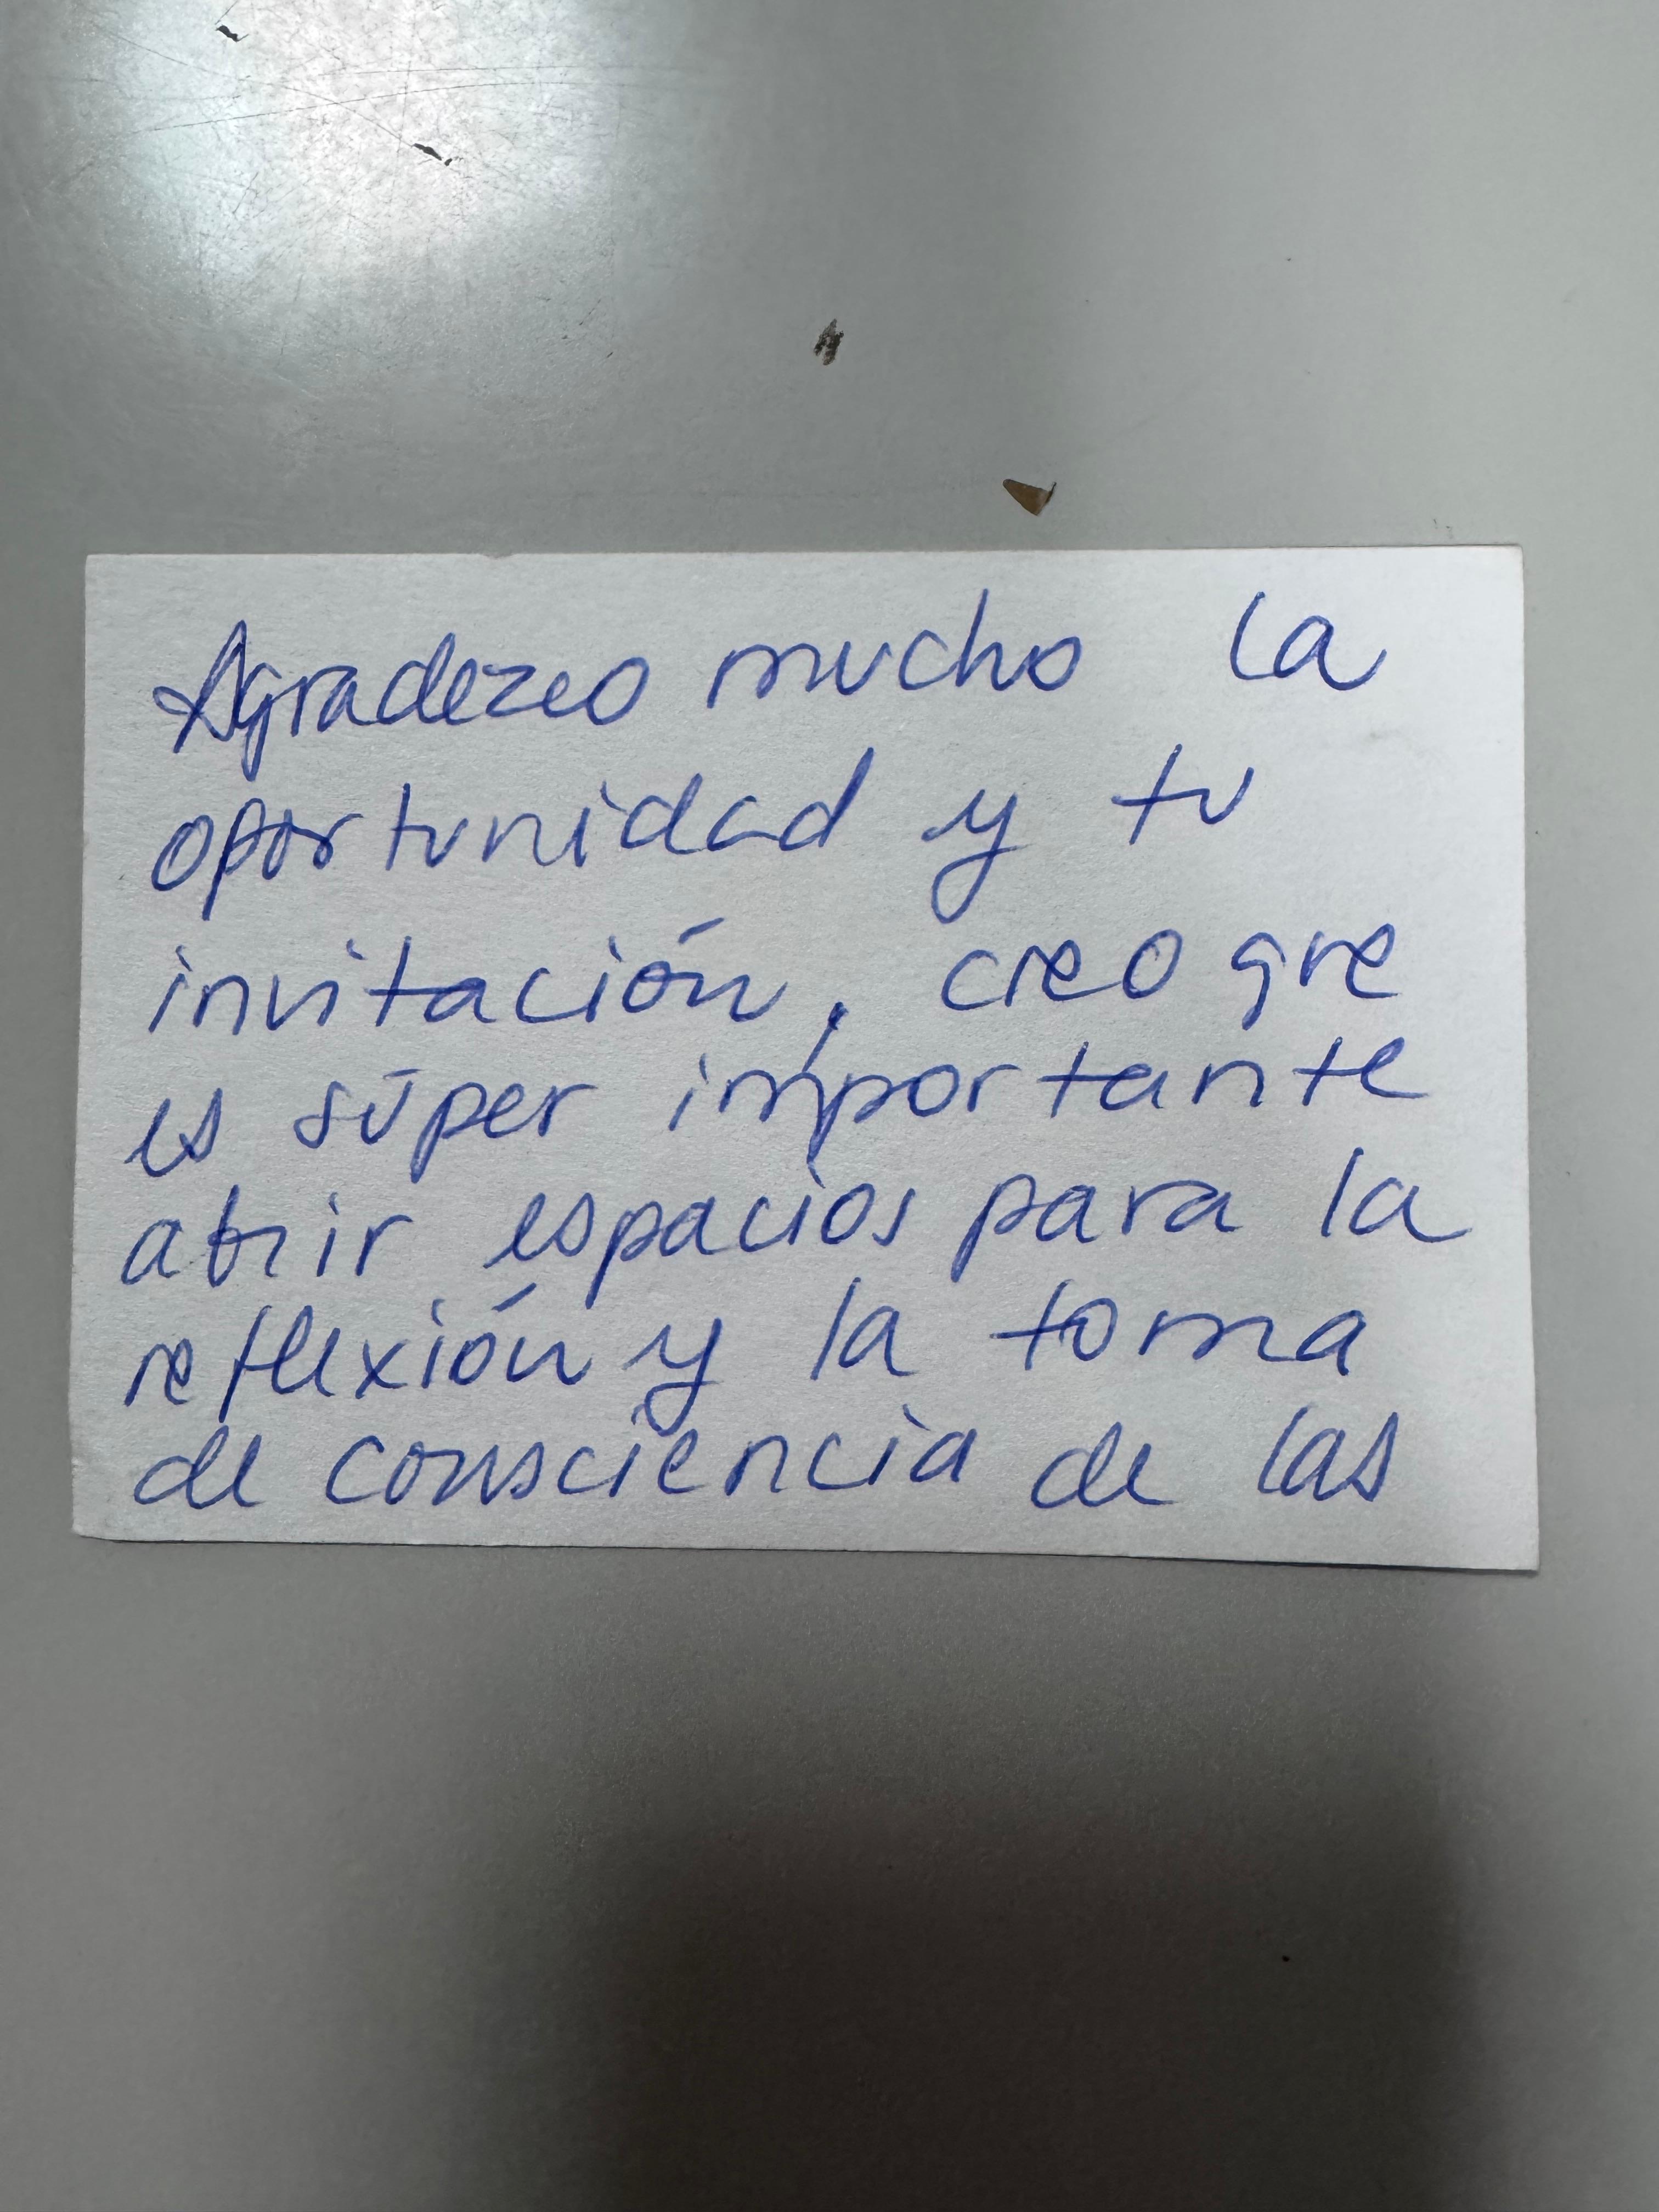 Agradezco mucho la
oportunidad y tu
invitación, creo que
es súper importante
abrir espacios para la
reflexión y la toma
de consciencia de las